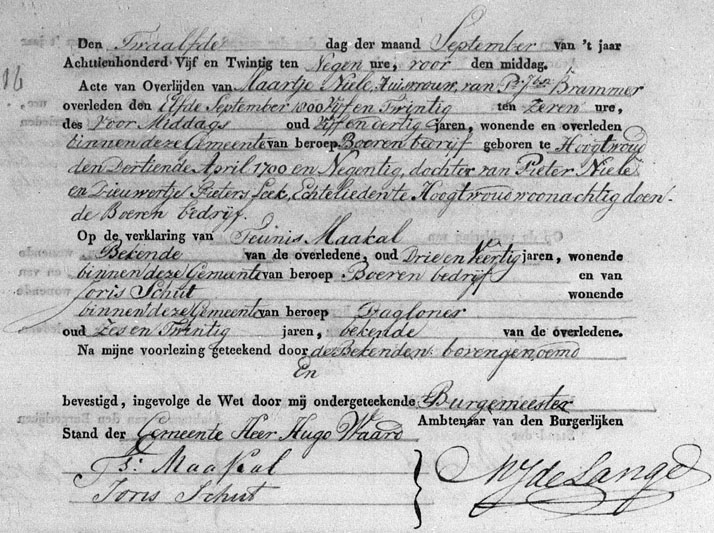 Den Twaalfde dag der maand September van 't jaar
Achttienhonderd Vijf en Twintig ten Negen ure, voor den middag.
16
Acte van Overlijden van Maartje Niele, Huisvrouw, van Pr. Jbsz Brammer
overleden den Elfde September 1800 Vijf en Twintig ten Zeven ure,
des Voor Middags oud Vijf en dertig jaren, wonende en overleden
binnen deze Gemeente van beroep Boeren bedrijf geboren te Hoogtwoud
den Dertiende April 1700 en Negentig, dochter van Pieter Niele
en Dieuwertje Pieters Loek, Echtelieden te Hoogtwoud woonachtig doen-
de Boeren bedrijf.
Op de verklaring van Teunis Maakal
Bekende van de overledene, oud Drie en Veertig jaren, wonende
binnen deze Gemeente van beroep Boeren bedrijf en van
Joris Schut wonende
binnen deze Gemeente van beroep Dagloner
oud Zes en Twintig jaren, bekende van de overledene.
Na mijne voorlezing geteekend door de Bekenden bovengenoemd
En
bevestigd, ingevolge de Wet door mij ondergeteekende Burgemeester
Ambtenaar van den Burgerlijken
Stand der Gemeente Heer Hugo Waard
Ts: Maakal
Joris Schut
de Lange